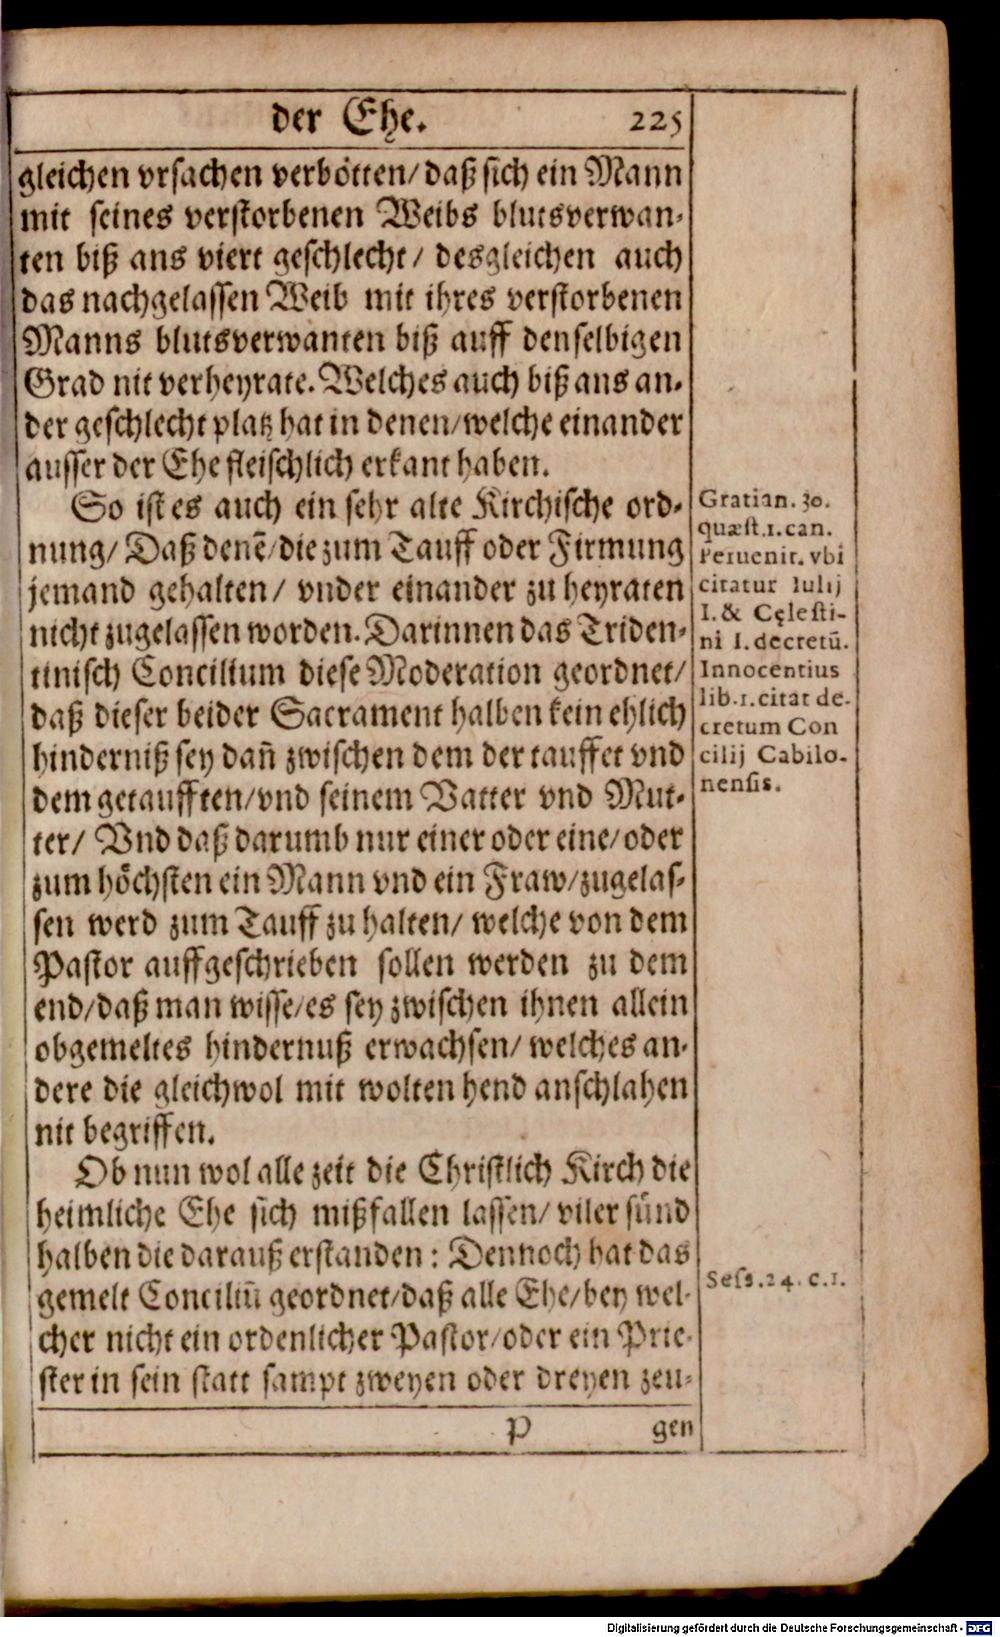 der Ehe. 225
gleichen vrsachen verbotten/daß sich ein Mann
mit seines verstorbenen Weibs blutsverwan-
ten biß ans viert geschlecht/ desgleichen auch
das nachgelassen Weib mit ihres verstorbenen
Manns blutsverwanten biß auff denselbigen
Grad nit verheyrate. Welches auch biß ans an-
der geschlecht platz hat in denen/welche einander
ausser der Ehe fleischlich erkant haben.
So ist es auch ein sehr alte Kirchische ord-
nung/ Daß denẽ/die zum Tauff oder Firmung
jemand gehalten/ vnder einander zu heyraten
nicht zugelassen worden. Darinnen das Triden-
tinisch Concilium diese Moderation geordnet/
daß dieser beider Sacrament halben kein ehlich
hinderniß sey dañ zwischen dem der tauffet vnd
dem getaufften/vnd seinem Vatter vnd Mut-
ter/ Vnd daß darumb nur einer oder eine/oder
zum höchsten ein Mann vnd ein Fraw/zugelas-
sen werd zum Tauff zu halten/ welche von dem
Pastor auffgeschrieben sollen werden zu dem
end/daß man wisse/es sey zwischen ihnen allein
obgemeltes hindernuß erwachsen/ welches an-
dere die gleichwol mit wolten hend anschlahen
nit begriffen.
Ob nun wol alle zeit die Christlich Kirch die
heimliche Ehe sich mißfallen lassen/ viler sünd
halben die darauß erstanden: Dennoch hat das
gemelt Conciliũ geordnet/daß alle Ehe/bey wel-
cher nicht ein ordenlicher Pastor/oder ein Prie-
ster in sein statt sampt zweyen oder dreyen zeu-
P gen
Gratian. 30.
quæst.1.can.
Peruenit. vbi
citatur Iulij
I. & Cęlesti-
ni I. decretũ.
Innocentius
lib.1.citat de-
cretum Con
cilij Cabilo-
nensis.
Sess.24.c.1.
Digitalisierung gefördert durch die Deutsche Forschungsgemeinschaft - DFG